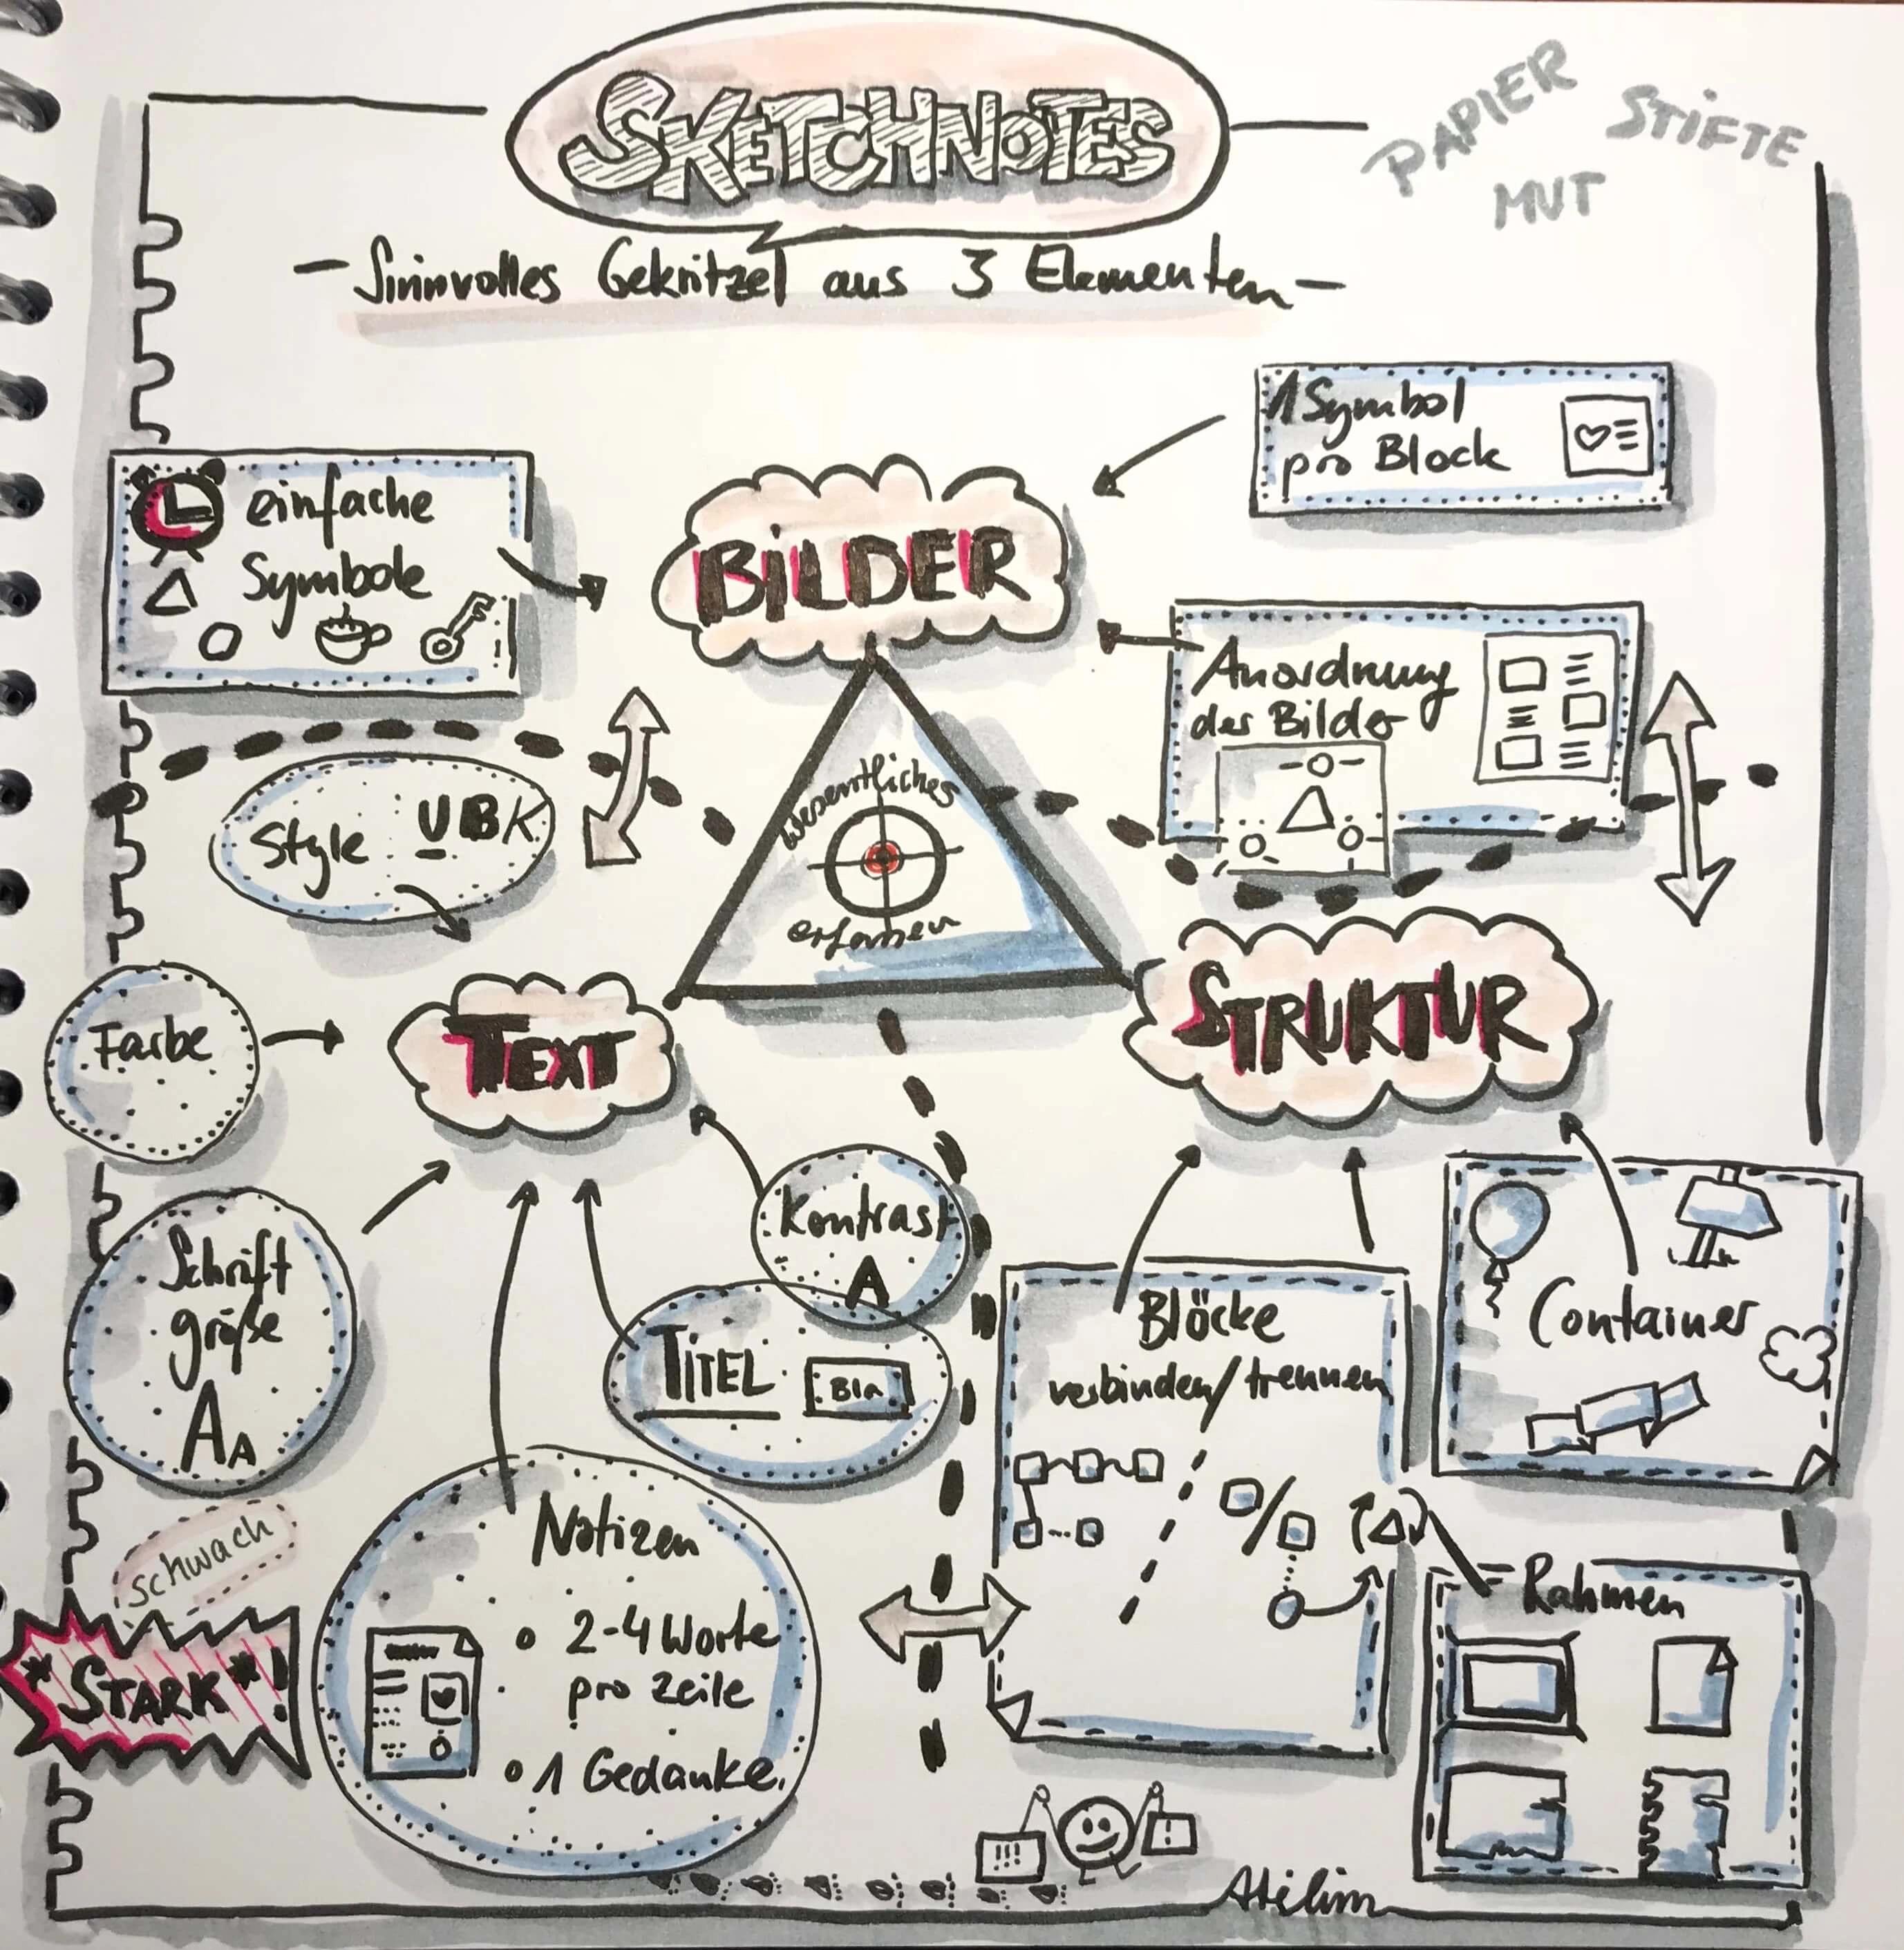 SKETCHNOTES
PAPIER
STIFTE
MUT
- Sinnvolles Gekritzel aus 3 Elementen -
1 Symbol
pro Block
einfache
Symbole
BILDER
Anordnung
der Bilder
Style UBK
wesentliches
erfassen
Farbe
TEXT
STRUKTUR
Schrift
größe
AA
Kontrast
A
TITEL
Bla
Blöcke
verbinden/trennen
Container
schwach
*STARK*!
Notizen
• 2-4 Worte
pro Zeile
• 1 Gedanke
Rahmen
!!!
!
Atilim